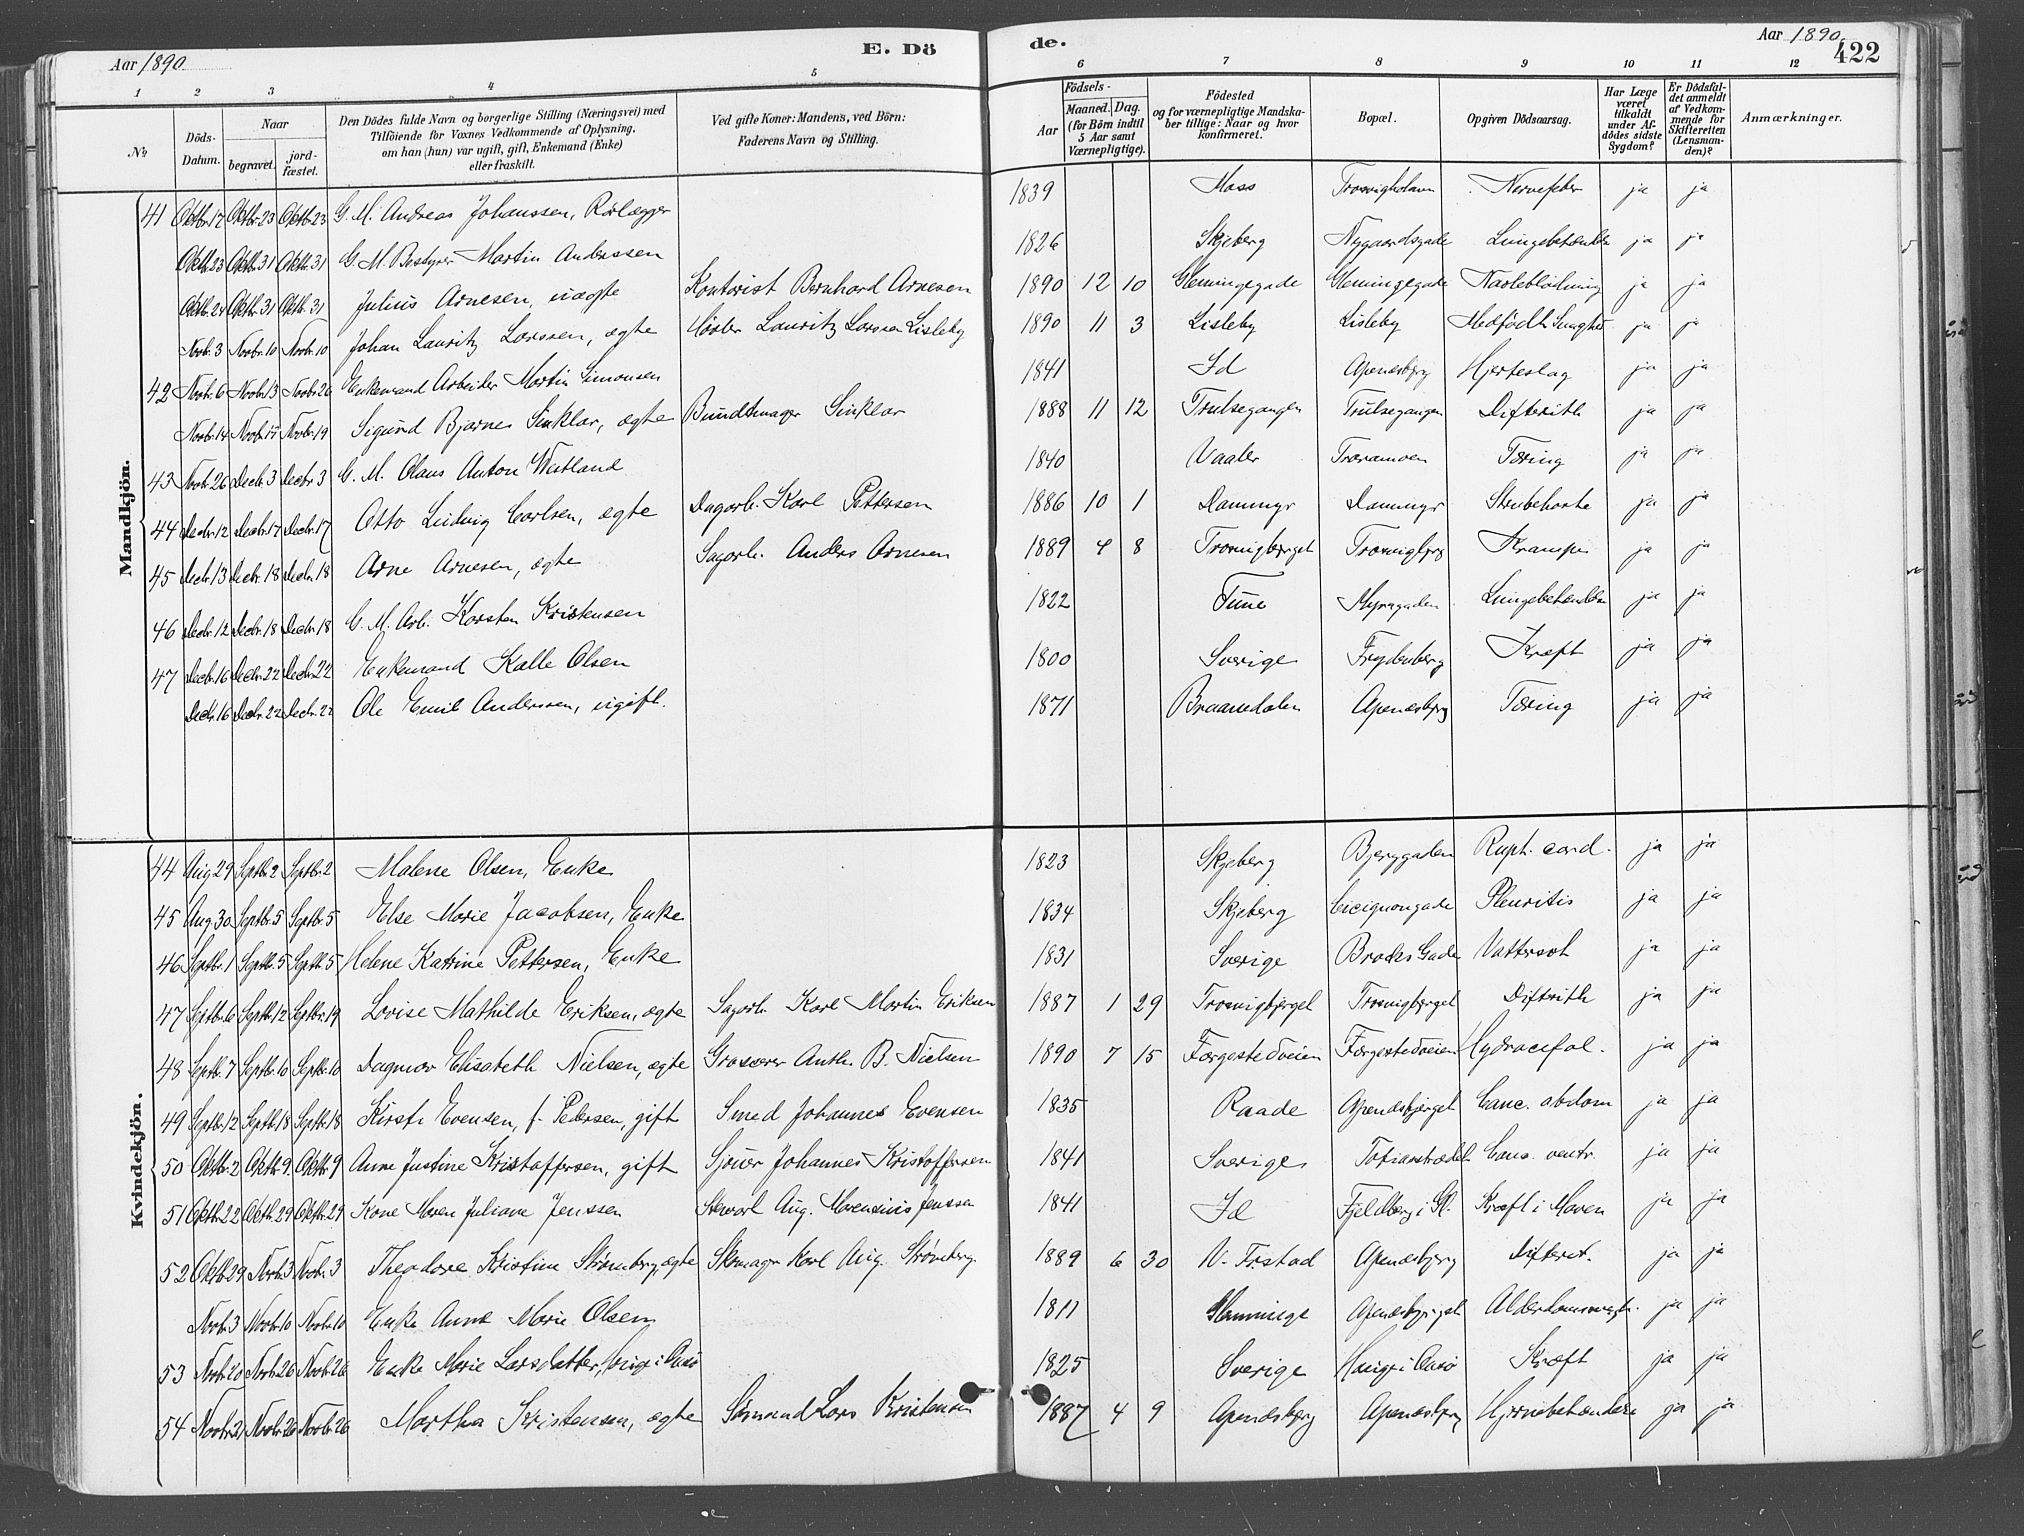 Aar 1890. E. Dö de. Aar 1890. 422
1 2 3 4 5 6 7 8 9 10 11 12
№ Döds-Datum. Naar begravet. jordfæstet. Den Dödes fulde Navn og borgerlige Stilling (Næringsvei) med Tilföiende for Voxnes Vedkommende af Oplysning, om han (hun) var ugift, gift, Enkemand (Enke) eller fraskilt. Ved gifte Koner: Mandens, ved Börn: Faderens Navn og Stilling. Födsels- Aar Maaned. Dag. (for Börn indtil 5 Aar samt Værnepligtige). Födested og for værnepligtige Mandskaber tillige: Naar og hvor konfirmeret. Bopæl. Opgiven Dödsaarsag. Har Læge været tilkaldt under Afdödes sidste Sygdom? Er Dödsfaldet anmeldt af Vedkommende for Skifteretten (Lensmanden)? Anmærkninger.
Mandkjön.
41 Oktbr. 17 Oktbr. 23 Oktbr. 23 G. M. Andreas Johanssen, Rørlægger 1839 Moss Nervefeber ja ja
Oktbr. 23 Oktbr. 31 Oktbr. 31 G. M. Bestyrer Martin Anderssen 1826 Skjeberg Nygaardsgade ja ja
Oktbr. 24 Oktbr. 31 Oktbr. 31 Julius Arnesen, uægte Kontorist Bernhard Arnesen 1890 12 10 Glemingegade Glemingegade Navleblødning ja ja
Novbr. 3 Novbr. 10 Novbr. 10 Johan Lauritz Larssen, ægte Lauritz Larssen Lisleby 1890 11 3 Lisleby Lisleby Medfødt ja ja
42 Novbr. 6 Novbr. 13 Novbr. 26 Enkemand Arbeider Martin Simonsen 1841 Id Apenæsbjerg Hjerteslag ja ja
Novbr. 14 Novbr. 17 Novbr. 19 Sigurd Bjarne Sinklar, ægte Bundtmager Sinklar 1888 11 12 Trulsegangen Trulsegangen Difterith ja ja
43 Novbr. 26 Decbr. 3 Decbr. 3 G. M. Olaus Anton 1840 Vaaler Traramoen Tæring ja ja
44 Decbr. 12 Decbr. 17 Decbr. 17 Otto Ludvig Carlsen, ægte Dagarb. Karl Pettersen 1886 10 1 Dammyr Dammyr Strubehoste ja ja
45 Decbr. 13 Decbr. 18 Decbr. 18 Arne Arnesen, ægte Sagarb. Anders Arnesen 1889 4 8 Trosvigbjerget Trosvigbjerg Krampe ja ja
46 Decbr. 12 Decbr. 18 Decbr. 18 G. M. Arb. Karsten Kristensen 1822 Tune Myragaden ja ja
47 Decbr. 16 Decbr. 22 Decbr. 22 Enkemand Kalle Olsen 1800 Sverige Frydenberg Kræft ja ja
Decbr. 16 Decbr. 22 Decbr. 22 Ole Emil Anderssen, ugift. 1871 Braanedalen Apenæsbjerg Tæring ja ja
Kvindekjön.
44 Aug 29 Septbr. 2 Septbr. 2 Malene Olsen, Enke 1823 Skjeberg Bjerggaden Rupt. cord. ja ja
45 Aug. 30 Septbr. 5 Septbr. 5 Else Marie Jacobsen, Enke 1834 Skjeberg Cicignongade Pleuritis ja ja
46 Septbr. 1 Septbr. 5 Septbr. 5 Helene Katrine Pettersen, Enke 1831 Sverige Brochs Gade Vattersot ja ja
47 Septbr. 6 Septbr. 12 Septbr. 19 Lovise Mathilde Eriksen, ægte Sagarb. Karl Martin Eriksen 1887 1 29 Trosvigbjerget Trosvigbjerget Difterith ja ja
48 Septbr. 7 Septbr. 10 Septbr. 10 Dagmar Elisabeth Nielsen, ægte Grosserer Anth. B. Nielsen 1890 7 15 Færgestedveien Færgestedveien Hydrocefal. ja ja
49 Septbr. 12 Septbr. 18 Septbr. 18 Kirsti Evensen, f. Pedersen, gift Smed Johannes Evensen 1835 Raade Apenæsbjerget Canc. abdom ja ja
50 Oktbr. 2 Oktbr. 9. Oktbr. 9 Anne Justine Kristoffersen, gift Sjouer Johannes Kristoffersen 1841 Sverige Canc. ventr. ja ja
51 Oktbr. 22 Oktbr. 29 Oktbr. 29 Kone Maren Juliane Jenssen Stewart Aug. Marensius Jenssen 1841 Id Fjeldberg i Gl. Kræft i Maven ja ja
52 Oktbr. 29 Novbr. 3 Novbr. 3 Theodore Kristine Strømberg, ægte Skomager Karl Aug. Strømberg. 1889 6 30 V. Frstad Apenæsbjerg Difterit. ja ja
Novbr. 3 Novbr. 10 Novbr. 10 Enke Anne Marie Olsen 1811 Glemminge Apenæsbjerget ja ja
53 Novbr. 20 Novbr. 26 Novbr. 26 Enke Marie Larsdatter, Hauge i Onsø 1825 Sverige Hauge i Onsø Kræft ja ja
54 Novbr. 21 Novbr. 26 Novbr. 26 Martha Kristensen, ægte Sømand Lars Kristensen 1887 4 9 Apenæsbjerg Apenæsbjerg Hjernebetændelse ja ja